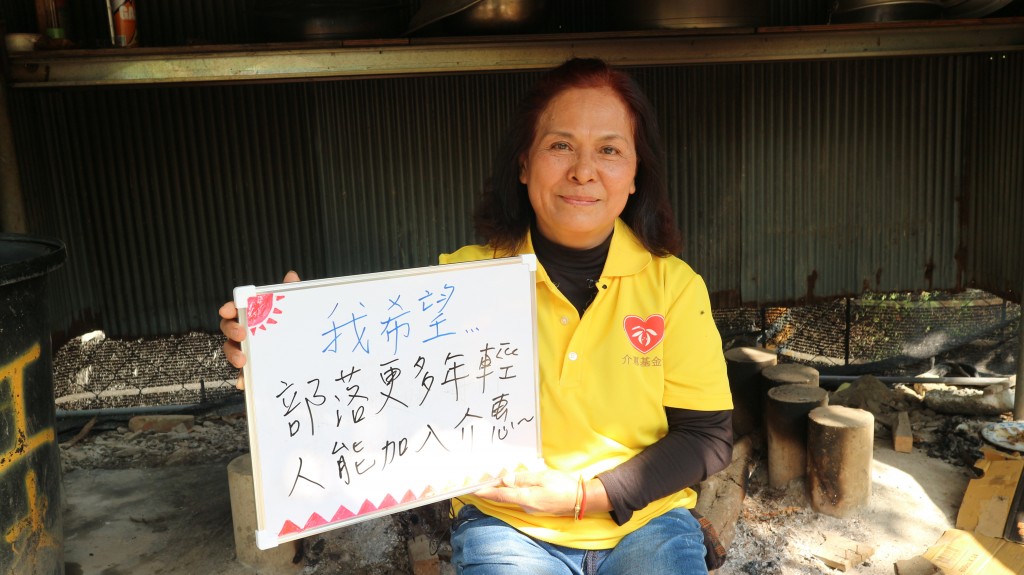 我希望...
部落更多年輕
人能加入介惠~
介惠基金